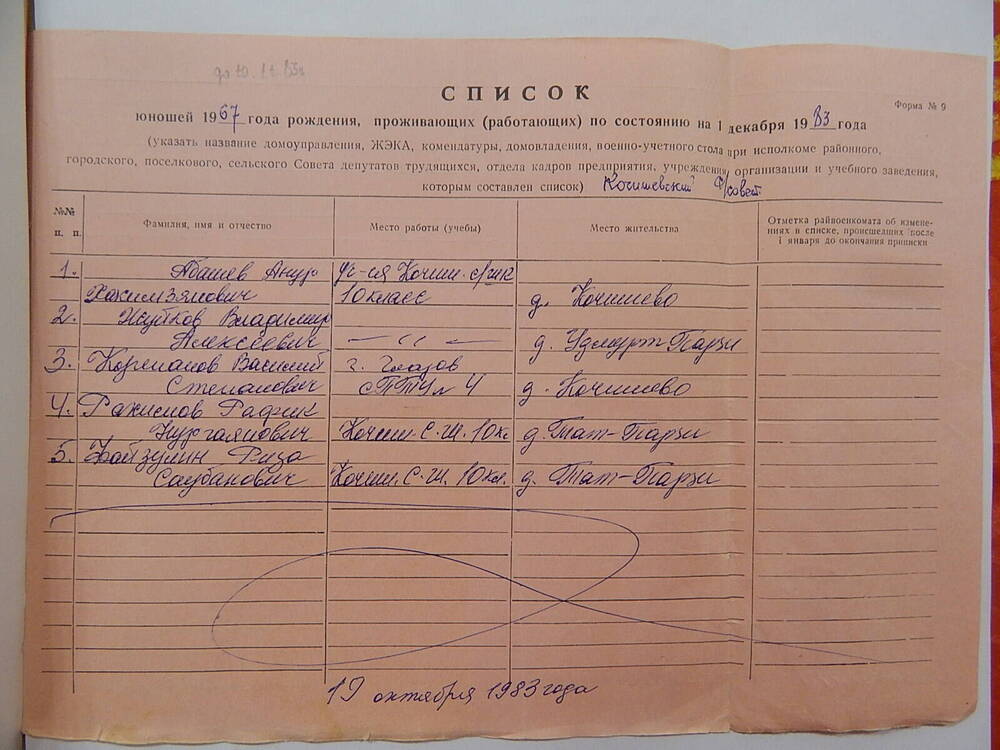 СПИСОК
Форма № 9
юношей 1967 года рождения, проживающих (работающих) по состоянию на 1 декабря 1983 года
(указать название домоуправления, ЖЭКА, комендатуры, домовладения, военно-учетного стола при исполкоме районного,
городского, поселкового, сельского Совета депутатов трудящихся, отдела кадров предприятия, учреждения, организации и учебного заведения,
которым составлен список) Кочишевский с/совет
№№ п. п. Фамилия, имя и отчество Место работы (учебы) Место жительства Отметка райвоенкомата об измене-
ниях в списке, происшедших после
1 января до окончания приписки
1. Абашев
Хакимзянович 10 класс д. Кочишево
2. Жуйков Владимир
Алексеевич — ‹‹ — д. Удмурт-Парзи
3. Корепанов Василий г. Глазов
Степанович СПТУ 4 д. Кочишево
4. Рахимов Рафик
Нургаянович Кочиш. С.Ш. 10 кл. д. Тат-Парзи
5. Файзулин Риза
Саубанович Кочиш. С.Ш. 10 кл. д. Тат-Парзи
19 октября 1983 года